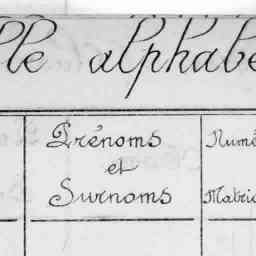 lle alphabe
Prénoms
et
Surnoms
Numé
Matric